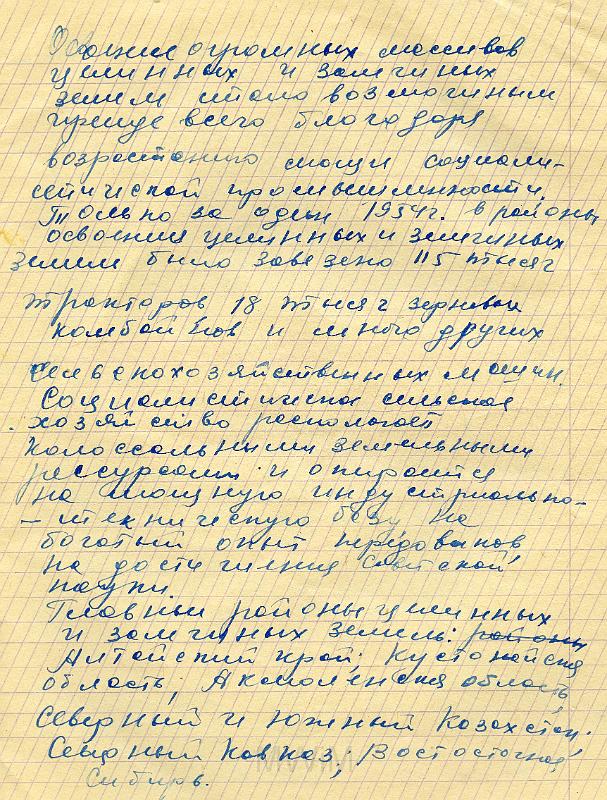 Освоение огромных массивов
целинных и залежных
земель стало возможным
прежде всего благодаря
возростанию мощи социали-
стической промышленности.
Только за один 1954г. в районы
освоения целинных и залежных
земель было завезено 115 тысяч
тракторов 18 тысяч зерновых
комбайнов и много других
сельскохозяйственных машин.
Социалистическое сельское
хозяйство распологает
колоссальными земельными
рессурсами и опирается
на мощную индустриально-
-техническую базу, на
богатый опыт передовиков,
на достижения советской
науки.
Главные районы целинных
и залежных земель: районы
Алтайский край; Кустонайская
область; Акмоленская область;
Северный и Южный Казахстан;
Северный Кавказ; Востосточная
Сибирь.